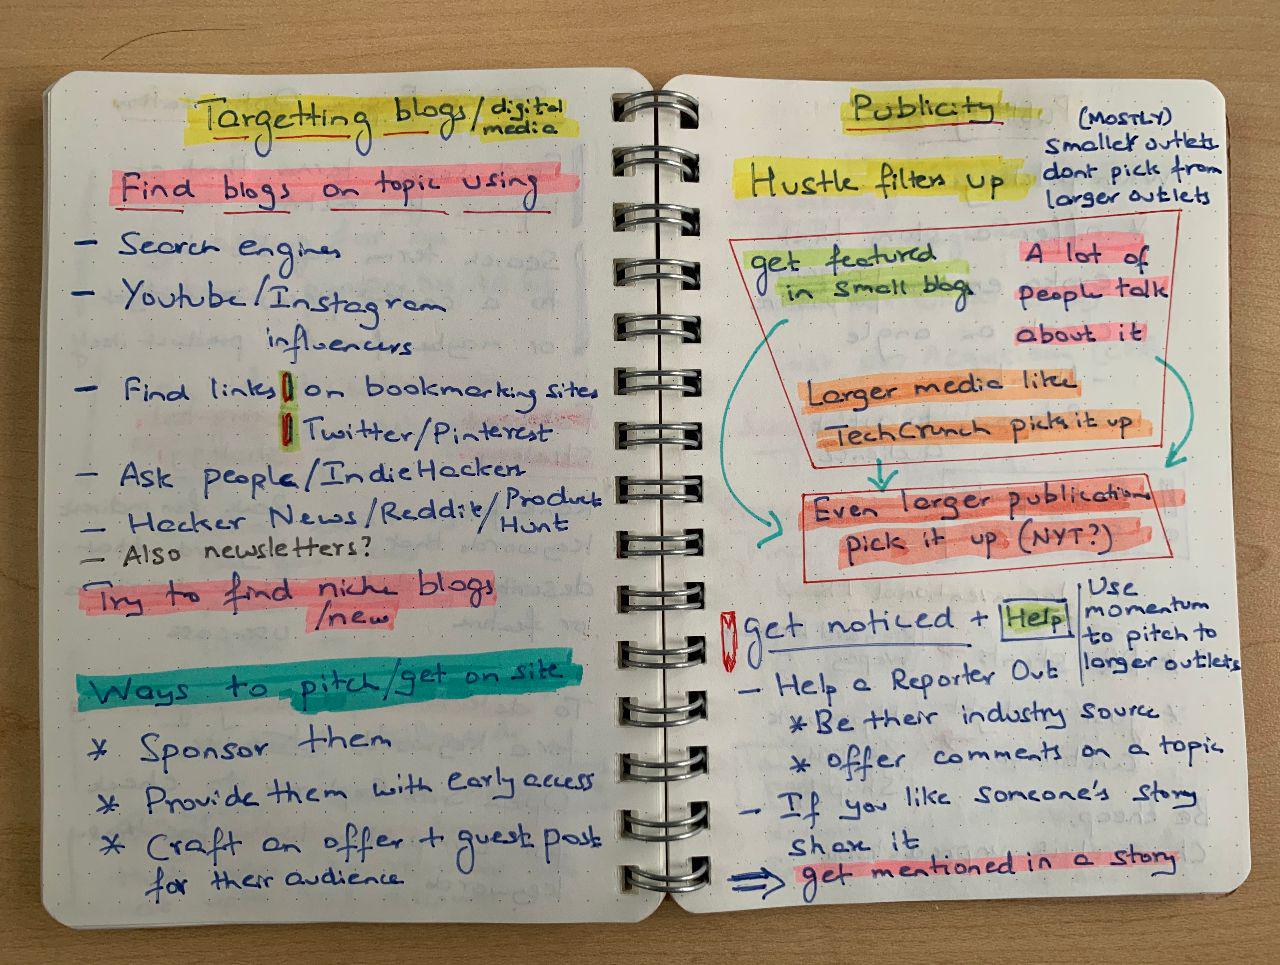 Targetting blogs/digital
media
Find blogs on topic using
- Search engines
- Youtube/Instagram
influencers
- Find links on bookmarking sites
Twitter/Pinterest
- Ask people/IndieHackers
- Hacker News/Reddit/Product
Hunt
- Also newsletters?
Try to find niche blogs
/new
Ways to pitch/get on site
* Sponsor them
* Provide them with early access
* Craft an offer + guest post
for their audience
Publicity
Hustle filters up
(MOSTLY)
smaller outlets
dont pick from
larger outlets
get featured
in small blogs
A lot of
people talk
about it
Larger media like
TechCrunch pick it up
Even larger publications
pick it up (NYT?)
get noticed + Help
Use
momentum
to pitch to
larger outlets
- Help a Reporter Out
* Be their industry source
* offer comments on a topic
- If you like someone's story
share it
⇒ get mentioned in a story